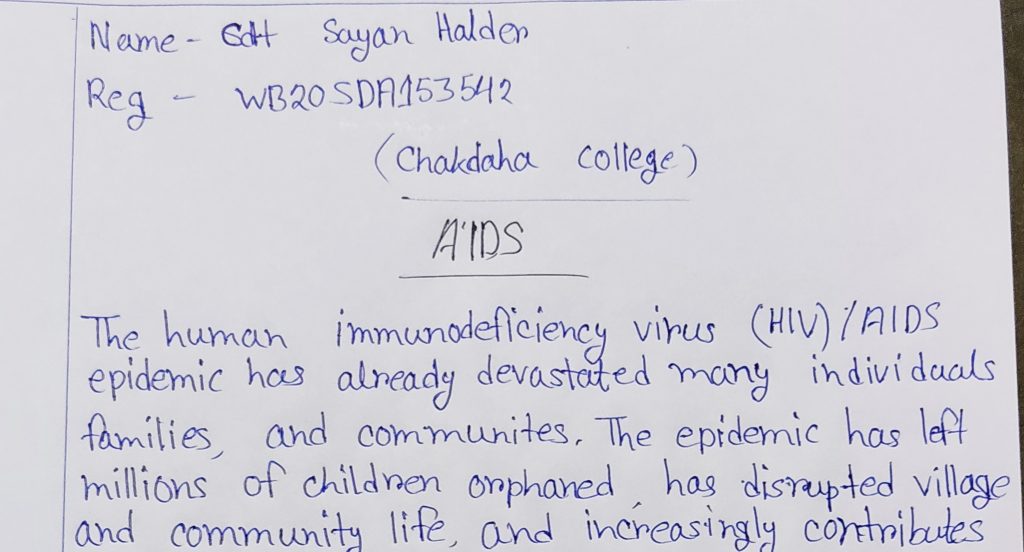 Name - Sayan Halder
Reg - WB20SDA153542
(Chakdaha college)
AIDS
The human immunodeficiency virus (HIV)/AIDS
epidemic has already devastated many individuals
families, and communites. The epidemic has left
millions of children orphaned, has disrupted village
and community life, and increasingly contributes